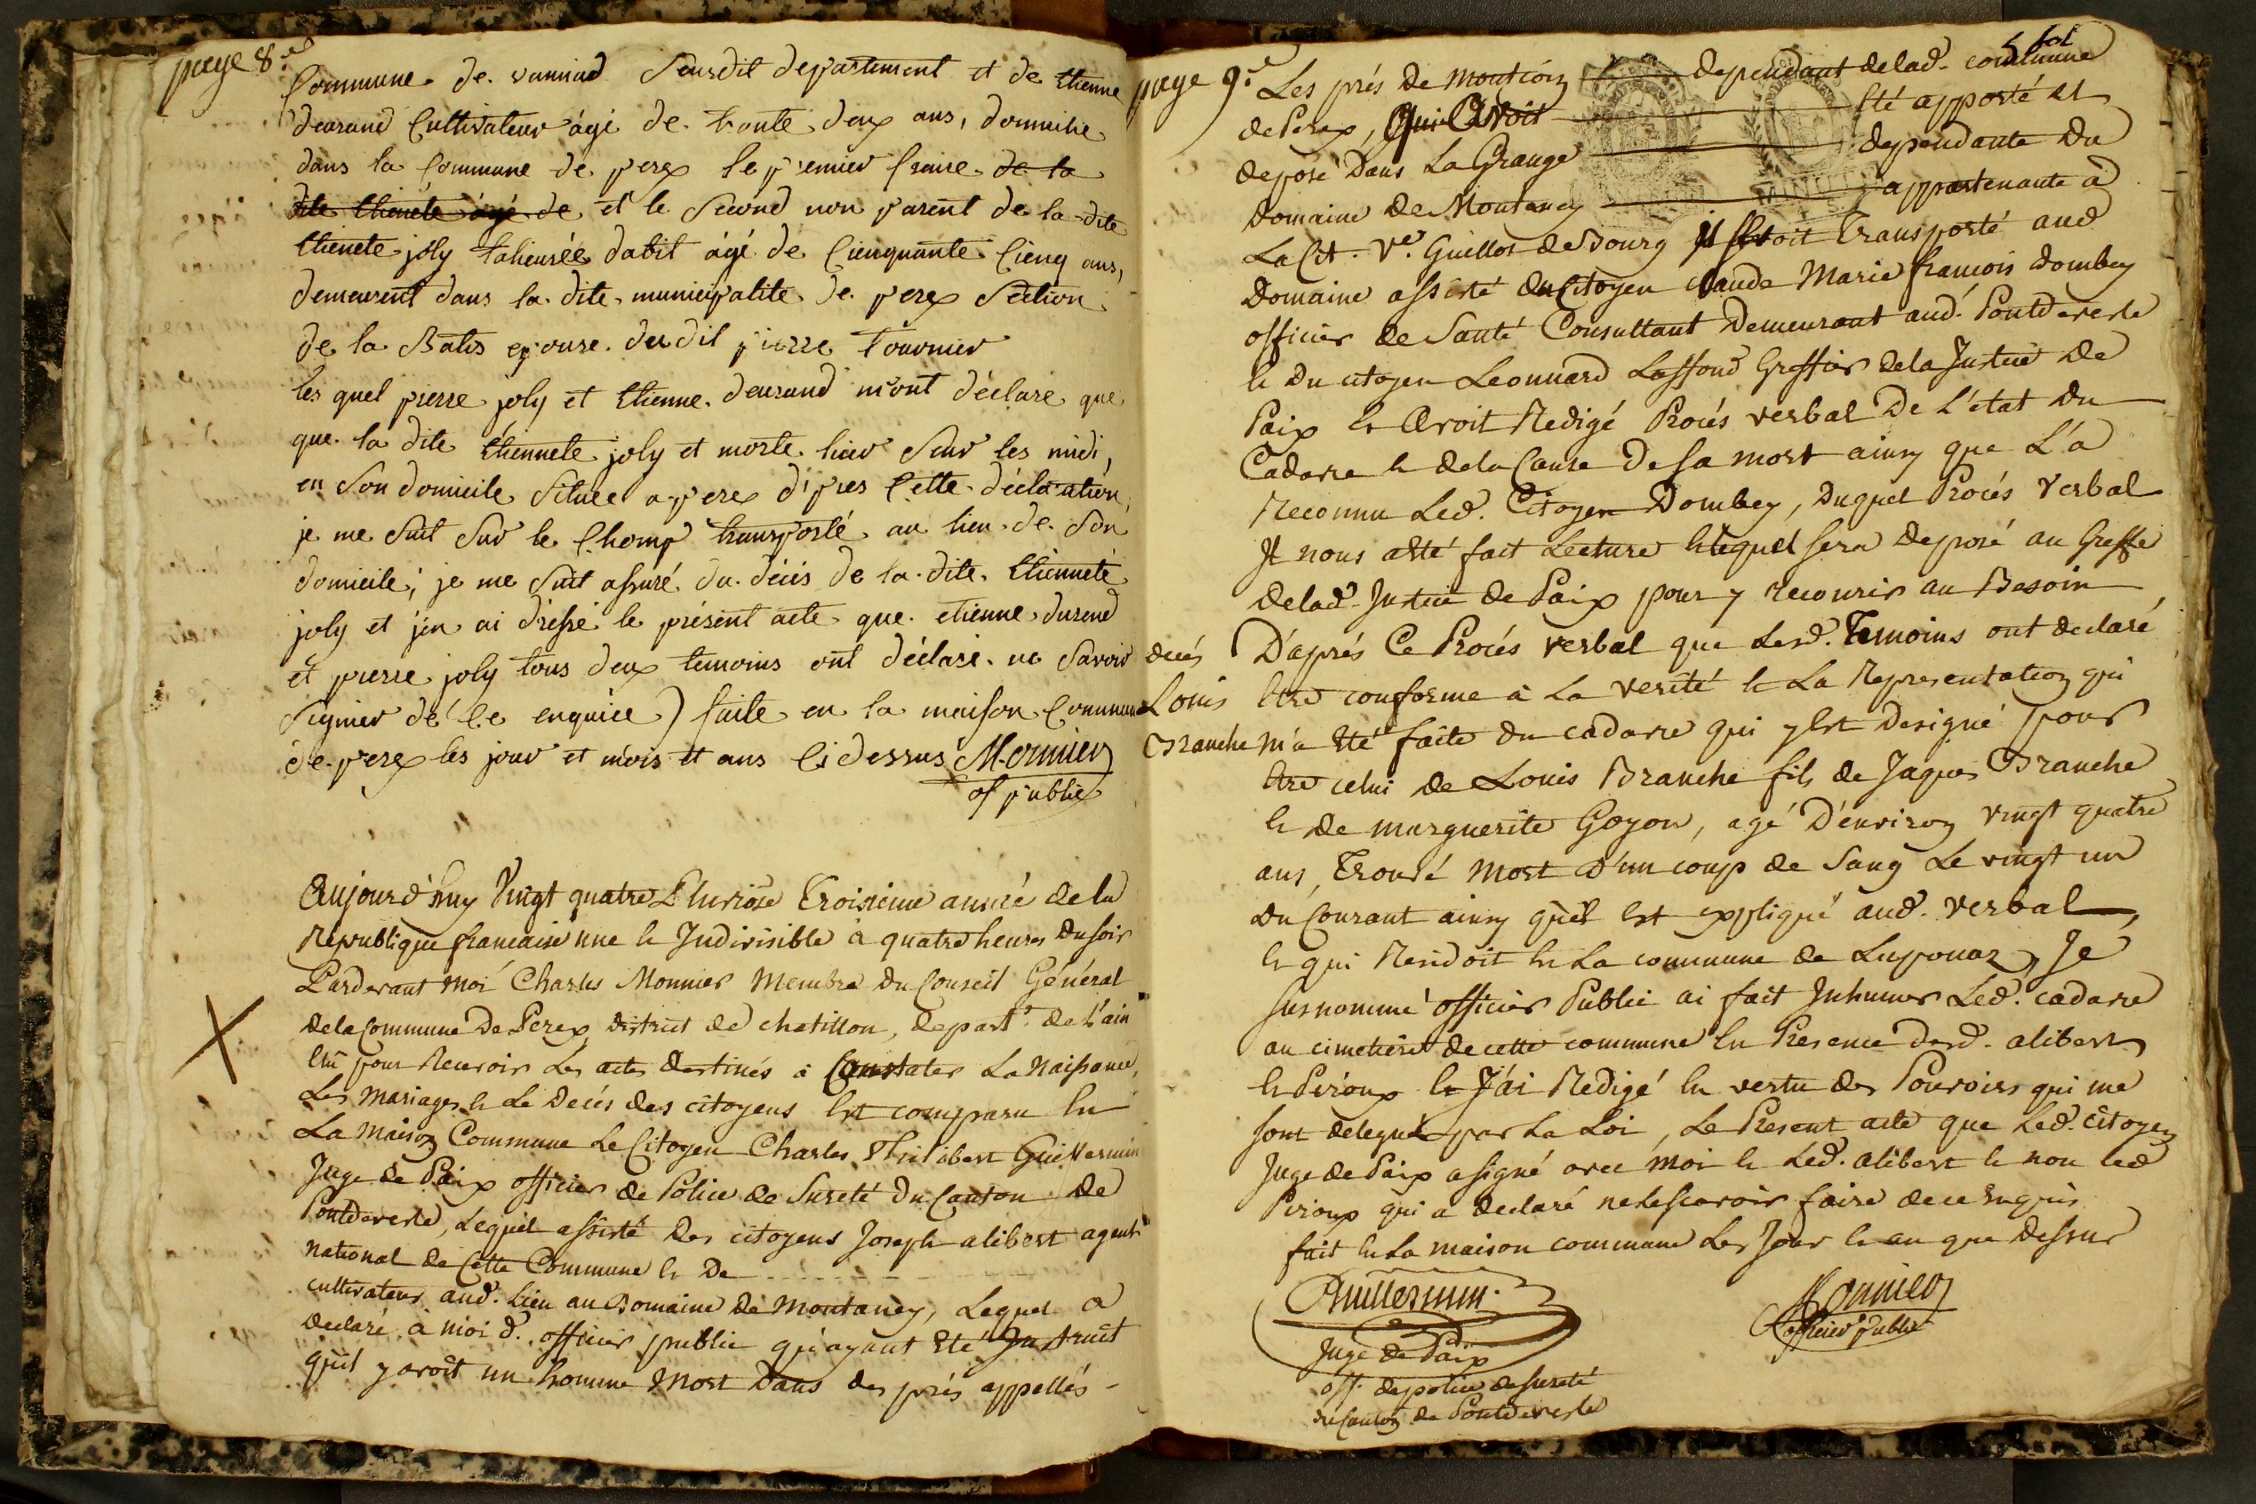 page 8e
Commune de vanniad Sensdit departement et de Etienne
deurand Cultivateur âgé de trente deux ans, domicilie
dans la Commune de perex le premier fraire de la
dite Etienete âgé de et le Second non parent de la dite
Etienete joly taheurée datit âgé de Cienquante Cienq ans,
demeurent dans la dite municipalite de perex Section
de la Batis epouse du dit pierre Tournier
les quel pierre joly et Etienne deurand m'ont déclaré que
que la dite Etiennete joly et morte hier Sur les midi,
en Son domicile Situee a perex d'pres Cette déclaration,
je me Suit Sur le Chomp transporté au lieu de Son
domicile, je me Suit assuré du décés de la dite Etienneté
joly et j'en ai dressé le présent acte que etienne durend
et pierre joly tous deux temoins ont déclaré ne Savoir
Signier de Ce enquice) faite en la maison Commune
de perex les jour et mois et ans Ci dessus Monnier
of public
Aujourd'huy Vingt quatre Pluviôse Troisieme année de la
Republique francaise une et Indivisible à quatre heures du soir
Pardevant moi Charles Monnier Membre du Conseil Général
de la Commune De Perex district de chatillon, depart.t de l'ain
Elû pour Recevoir Les actes destinés à Constater La Naissance,
Les Mariages et Le Decés des citoyens Est comparu En
La Maison Commune Le Citoyen Charles Philibert Guillermin
Juge de Paix officier de Police de Sureté du Canton De
Pontdevesle, Lequel assisté Des citoyens Joseph alibert agent
national de Cette Commune et De
cultivateur aud. Lieu au Domaine de Montaney, Lequel a
declaré à moi d. officier public qu'ayant Eté Instruit
qu'il y avoit un homme Mort Dans des prés appellés
page 9.e
Les prés De Montcoin dependant de lad. commune
de Perex, Qui Avoit Eté apporté et
deposé Dans La Grange dependante Du
Domaine De Montaney appartenante à
La Cit. Ve. Guillot de Bourg Il S'Etoit Transporté aud
Domaine assisté du Citoyen Claude Marie francois Dombey
officier de Santé Consultant Demeurant aud. Pontdevesle
et Du citoyen Leonnard Laffond Greffier de la Justice De
Paix et Avoit Redigé Procés verbal De L'etat Du
Cadavre et de la Cause De sa mort ainsy que L'a
Reconnu Led. Citoyen Dombey, Duquel Procés Verbal
Il nous a Eté fait Lecture et lequel sera deposé au Greffe
de lad. Justice de Paix pour y recourir au Besoin,
decés
Louis
Branche
D'après Ce Procés verbal que Lesd. Temoins ont declaré
Etre conforme à La verité et La Representation qui
m'a Eté faite du cadavre qui y Est Designé pour
Etre celui de Louis Branche fils de Jaques Branche
et de marguerite Goyon, agé D'environ vingt quatre
ans, Trouvé Mort D'un coup de Sang Le vingt un
du Courant ainsy qu'il Est expliqué aud. verbal,
et qui Residoit En La commune de Luponaz, Je
susnommé officier Public ai fait Inhumer Led. cadavre
au cimetiere de cette commune En Presence Desd. alibert
et Peroux et J'ai Redigé En vertu des Pouvoirs qui me
sont delegués par La Loi, Le Present acte que Led. citoyen
Juge de Paix a signé avec moi et Led. alibert et non led
Peroux qui a declaré ne le scavoir faire de ce Enquis
fait En La maison commune Les Jour et an que Dessus
Guillermin
Juge de Paix
off. de police de sureté
du Canton de Pontdevesle
Monnier
officier public